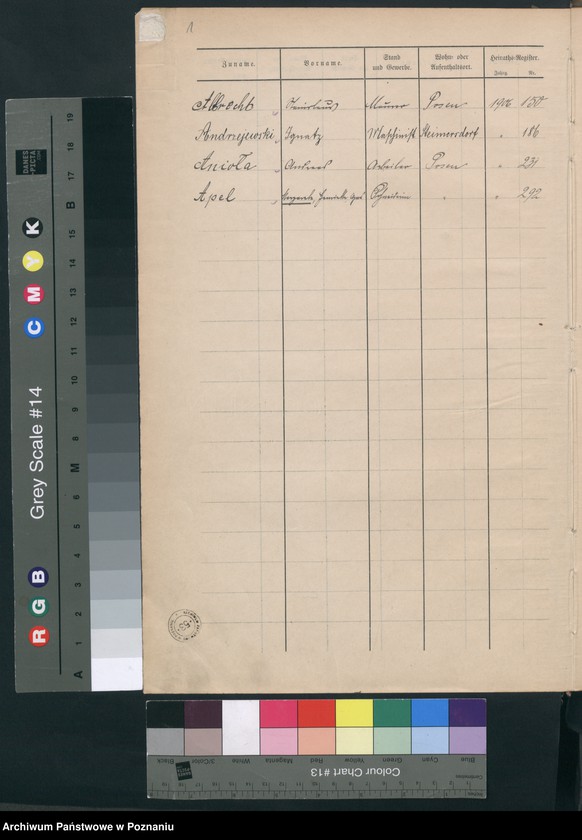 1
Zuname. Vorname. Stand und Gewerbe. Wohn- oder Aufenthaltsort. Heiraths-Register.
Jahrg. Nr.
Albrecht Maurer Posen 1906 150
Andrzejewski, Ignatz Maschinist " 186
Anioła, Andreas Arbeiter Posen " 231
Apel, " " 292
DANES PICTA
Grey Scale #14
R G B C M Y K
A 1 2 3 4 5 6 M 8 9 10 11 12 13 14 15 B 17 18 19
Blue Cyan Green Yellow Red Magenta White 3/Color Black
Colour Chart #13
Archiwum Państwowe w Poznaniu